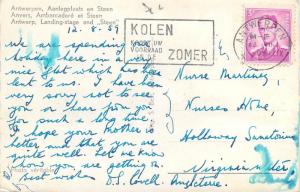 Antwerpen, Aanlegplaats en Steen
Anvers, Embarcadère et Steen
Antwerp, Landing-stage and "Steen"
12.8.59
KOLEN
VOORRAAD
ZOMER
ANTWERPEN
We are spending our
holiday here in a very
nice flat which has been
lent to us. I am
very sorry not to
see or hear from you
for such a long time
I hope your Mother is
better and that you are
quite well. Let me know
you are getting on
Best wishes
D.S. Covell.
Nurse Martinez
Nurses Home,
Holloway Sanatorium
Virginia Water
Angleterre.
Photo véritable